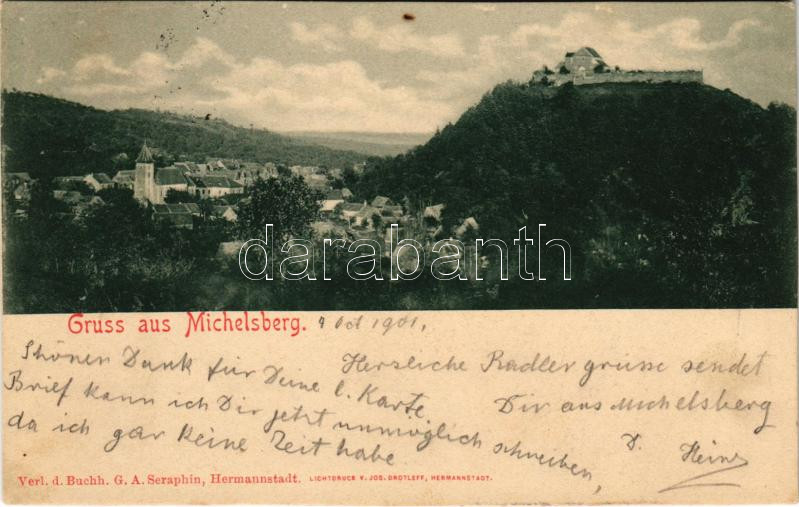 darabanth
Gruss aus Michelsberg. 9 Oct 1901.
Schönen Dank für Deine l. Karte
Brief kann ich Dir jetzt unmöglich schreiben,
da ich gar keine Zeit habe.
Herzliche Radlergrüsse sendet
Dir aus Michelsberg
D. Heinz
Verl. d. Buchh. G. A. Seraphin, Hermannstadt. LICHTDRUCK V. JOS. DROTLEFF, HERMANNSTADT.